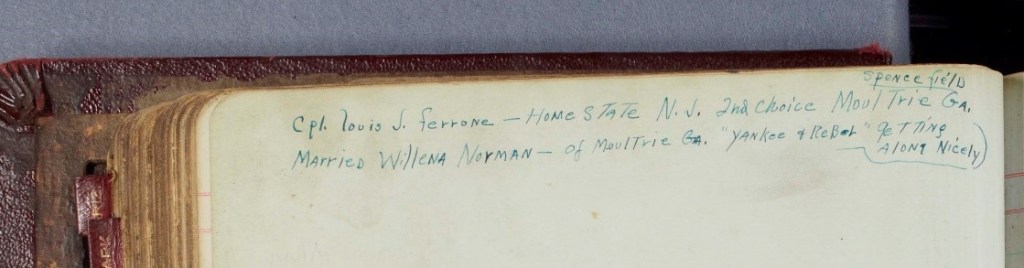 Spence field
Cpl. Louis J. Ferrone — Home State N.J. 2nd Choice Moultrie Ga.
Married Willena Norman — of Moultrie Ga. "Yankee & Rebel" getting
along Nicely)
ARK